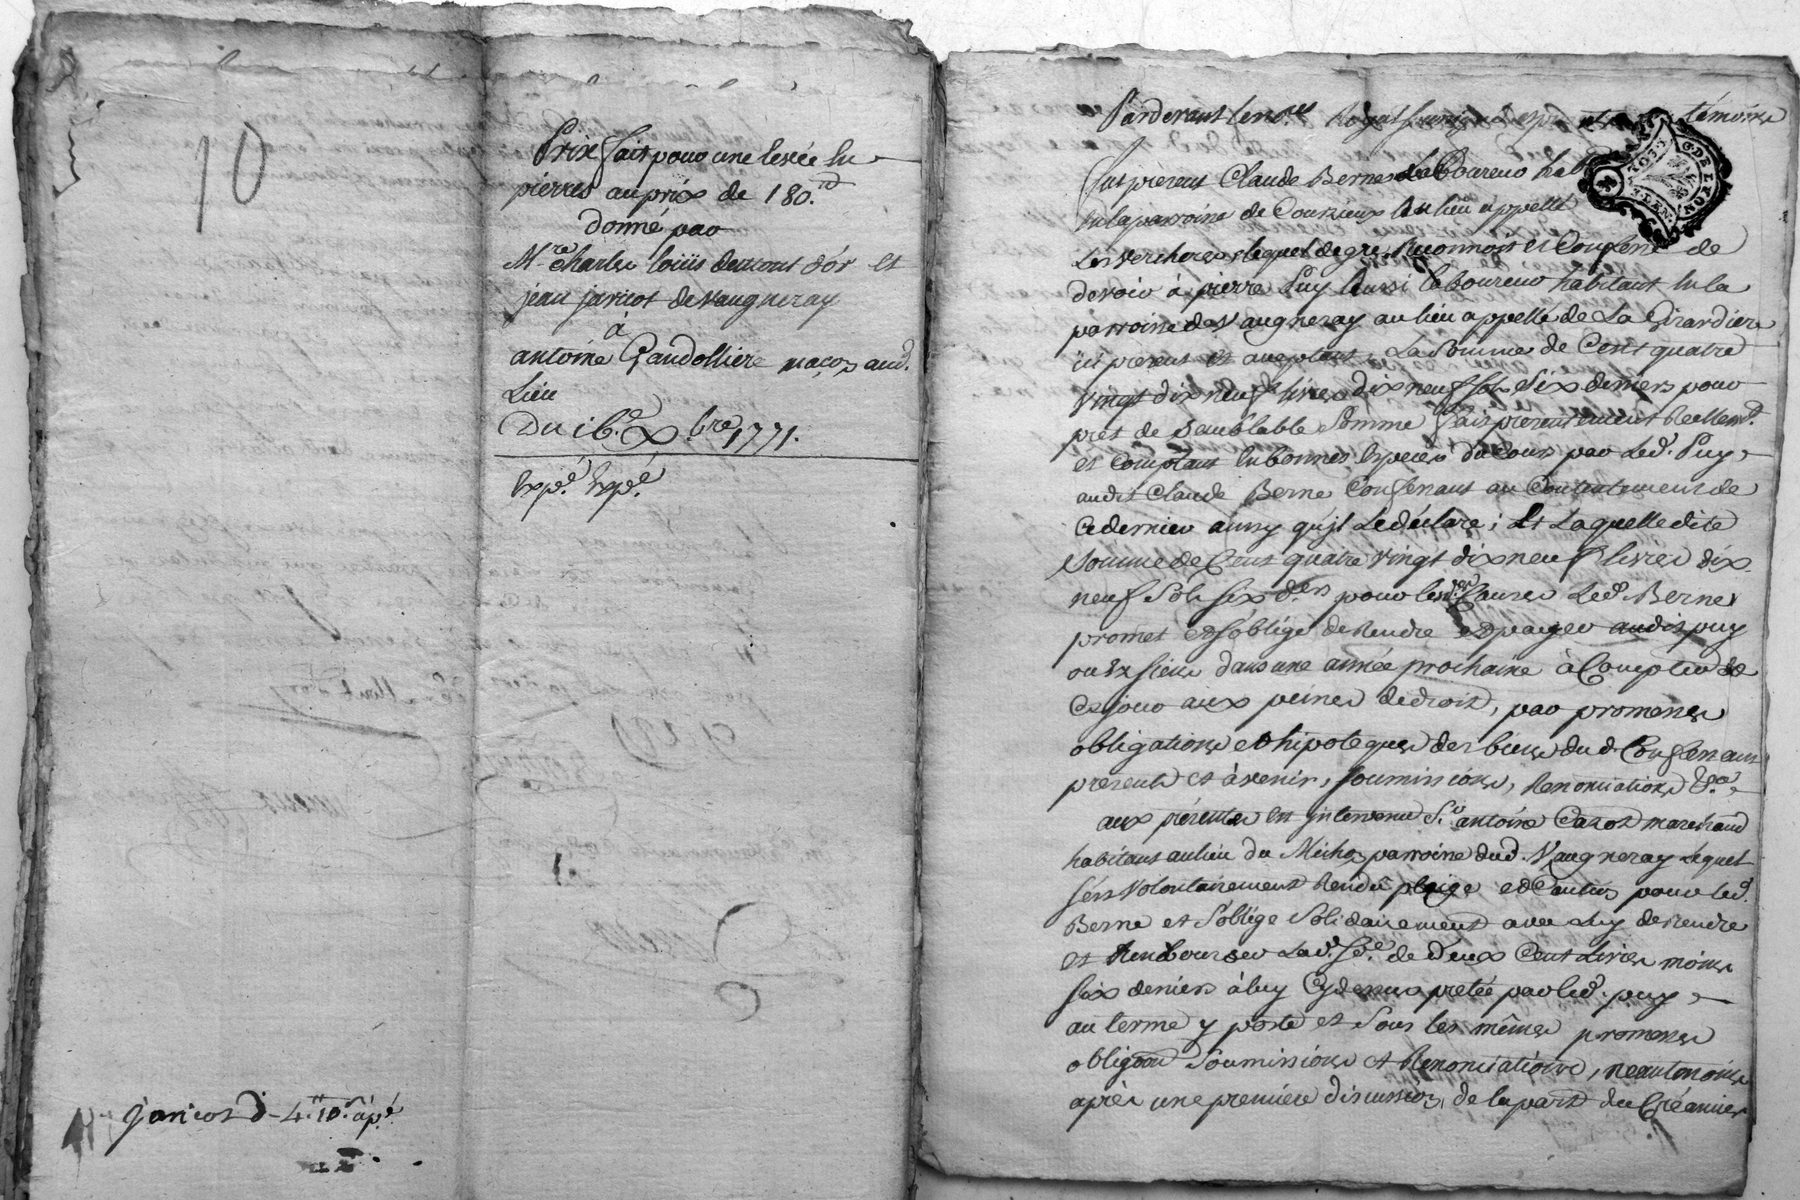 10
Prix fait pour une levée en
pierres au prix de 180.lt
donné par
Mre. Charles louis demont d'or et
jean jaricot de vaugneray
à
antoine Gaudolliere maçon aud.
Lieu
Du 16e. Xbre 1771.
Expé. Expé.
jaricot d - 4.lt 10.s apé.
Pardevant le nore. Royal soussigné et présents témoins
fut présent Claude Berne Laboureur habt.
en la parroisse de Courzieux au lieu appellé
Les verchères, lequel de gré Reconnoit et Confesse de
devoir à pierre Puy aussi laboureur habitant en la
parroisse de Vaugneray au lieu appellé de La Girardiere
ici présent et acceptant, La Somme de Cent quatre
vingt dix neuf livres dix neuf sols Six deniers pour
prêt de Semblable Somme fait présentement Réellemt.
et Comptant en bonnes Espèces du Cours par Led. Puy
audit Claude Berne Confessant au Contentement de
Ce dernier ainsy qu'jl Le déclare ; Et Laquelle dite
Somme de Cent quatre vingt dix neuf livres dix
neuf Sols six d.ers pour les d.tes Causes Led. Berne
promet et s'oblige de Rendre et payer audit puy
ou ès siens dans une année prochaine à Compter de
Ce jour aux peines de droit, par promesses
obligations et hipoteques des biens du d. Confessant
présents et à venir, soumissions, Renonciations &a.
aux présentes est intervenu Sr. antoine Cazot marchand
habitant au lieu du Michon parroisse dud. Vaugneray Lequel
s'est volontairement Rendu pleige et Caution pour led.
Berne et S'oblige Solidairement avec Luy de Rendre
et Rembourser Lad. se. de Deux Cent Livres moins
six deniers à luy Cy dessus pretée par led. puy
au terme y porté et Sous les mêmes promesses
obligaons Soumissions et Renonciations, neantmoins
après une première discussion, de la part du Créancier